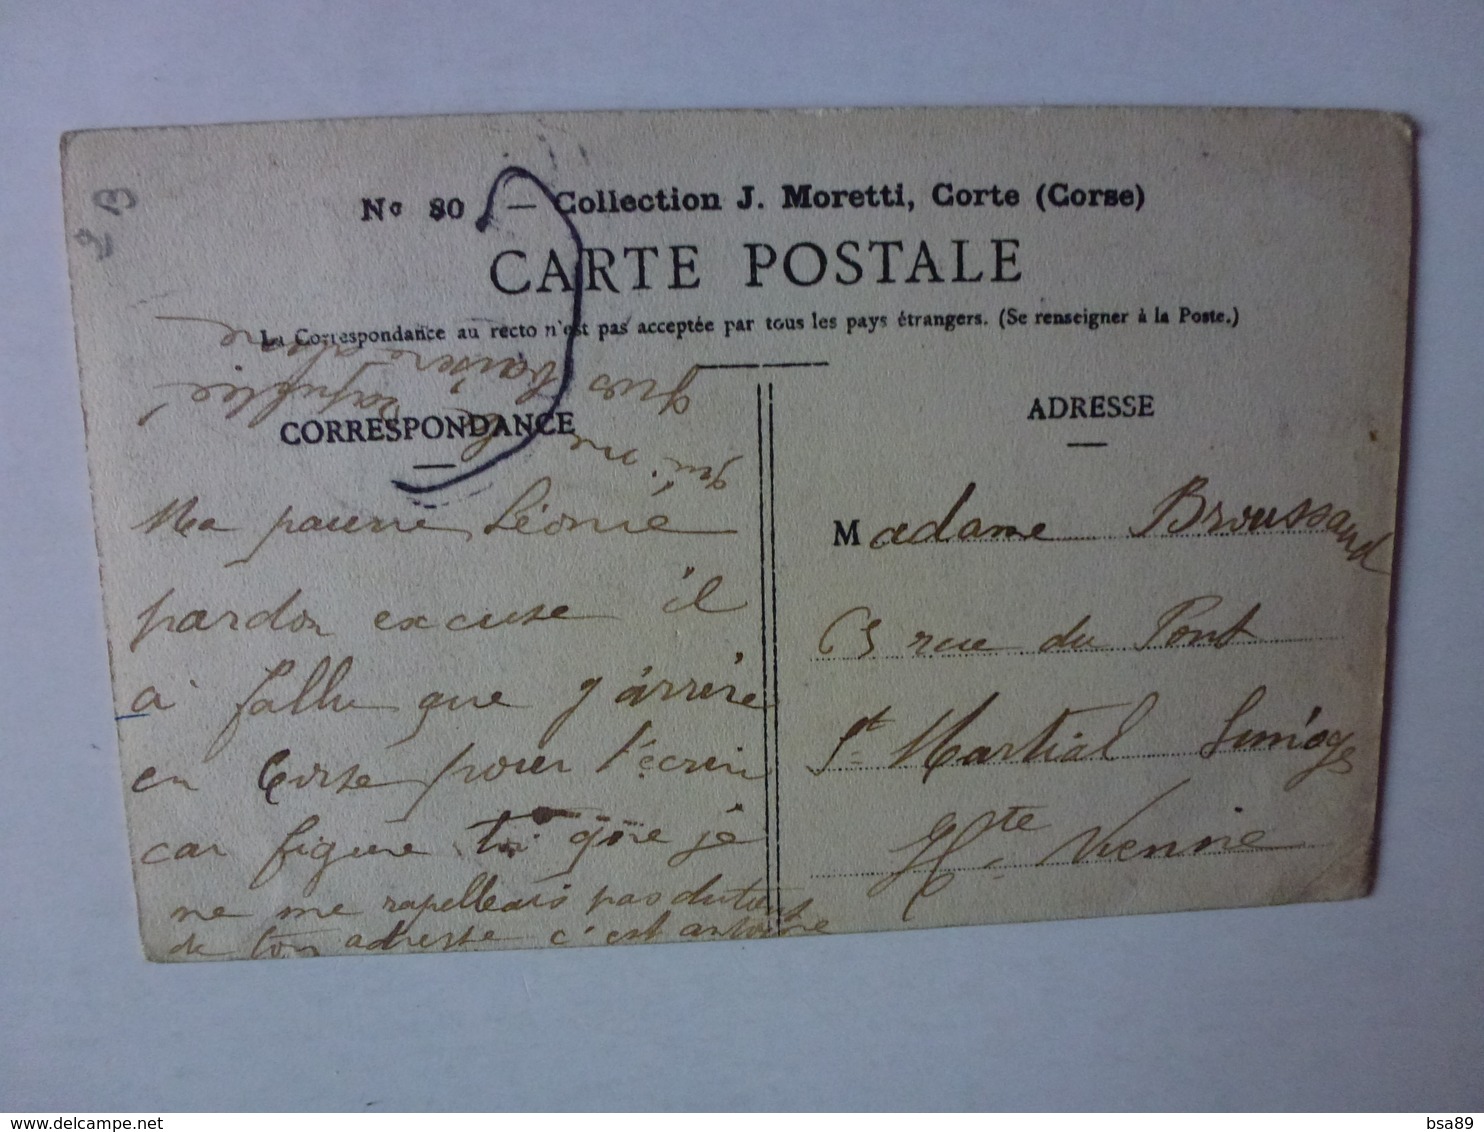 2 B
Nº 80 — Collection J. Moretti, Corte (Corse)
CARTE POSTALE
La Correspondance au recto n'est pas acceptée par tous les pays étrangers. (Se renseigner à la Poste.)
CORRESPONDANCE
Ma pauvre Léonie
pardon excuse il
a fallu que j'arrive
en Corse pour t'écrire
car figure toi que je
ne me rappellais pas du tout
de ton adresse c'est antoine
qui me l'a
rapellé
gros baisers
ADRESSE
Madame Broussaud
63 rue du Pont
St Martial Limoges
Hte Vienne
bsa89